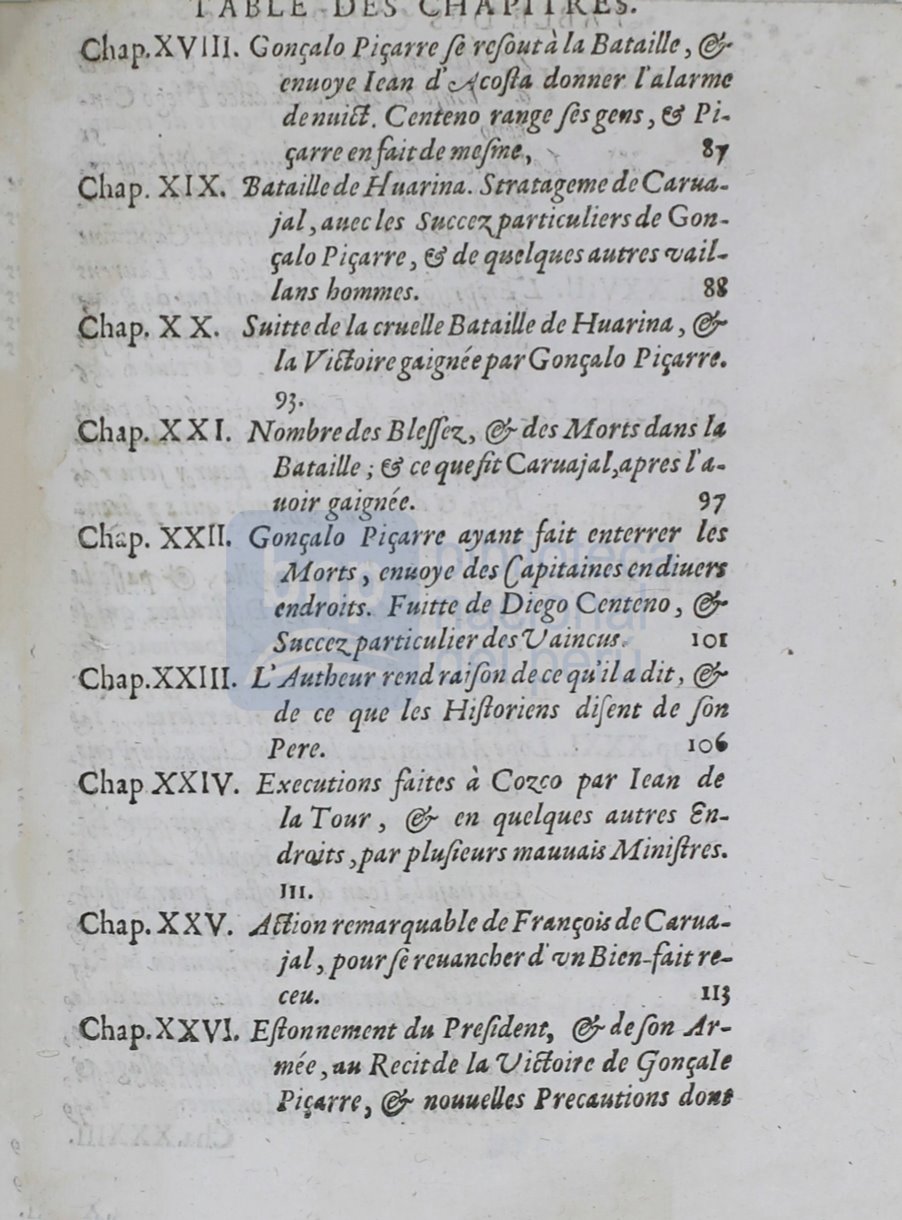 TABLE DES CHAPITRES.
Chap. XVIII. Gonçalo Piçarre ſe reſout à la Bataille, &
enuoye Iean d'Acoſta donner l'alarme
de nuict. Centeno range ſes gens, & Pi-
çarre en fait de meſme, 87
Chap. XIX. Bataille de Huarina. Stratageme de Carua-
jal, auec les Succez particuliers de Gon-
çalo Piçarre, & de quelques autres vail-
lans hommes. 88
Chap. XX. Suitte de la cruelle Bataille de Huarina, &
la Victoire gaignée par Gonçalo Piçarre.
93.
Chap. XXI. Nombre des Bleſſez, & des Morts dans la
Bataille ; & ce que fit Caruajal, apres l'a-
uoir gaignée. 97
Chap. XXII. Gonçalo Piçarre ayant fait enterrer les
Morts, enuoye des Capitaines en diuers
endroits. Fuitte de Diego Centeno, &
Succez particulier des Vaincus. 101
Chap. XXIII. L'Autheur rend raiſon de ce qu'il a dit, &
de ce que les Hiſtoriens diſent de ſon
Pere. 106
Chap XXIV. Executions faites à Cozco par Iean de
la Tour, & en quelques autres En-
droits, par pluſieurs mauuais Miniſtres.
111.
Chap. XXV. Action remarquable de François de Carua-
jal, pour ſe reuancher d'vn Bien-fait re-
ceu. 113
Chap. XXVI. Eſtonnement du Preſident, & de ſon Ar-
mée, au Recit de la Victoire de Gonçale
Piçarre, & nouuelles Precautions dont
bnp biblioteca
nacional
del perú